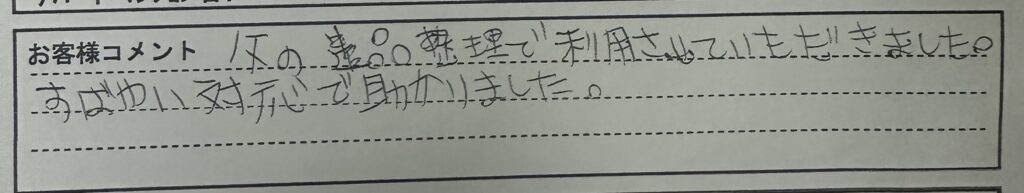 お客様コメント 父の遺品整理で利用させていただきました。
すばやい対応で助かりました。